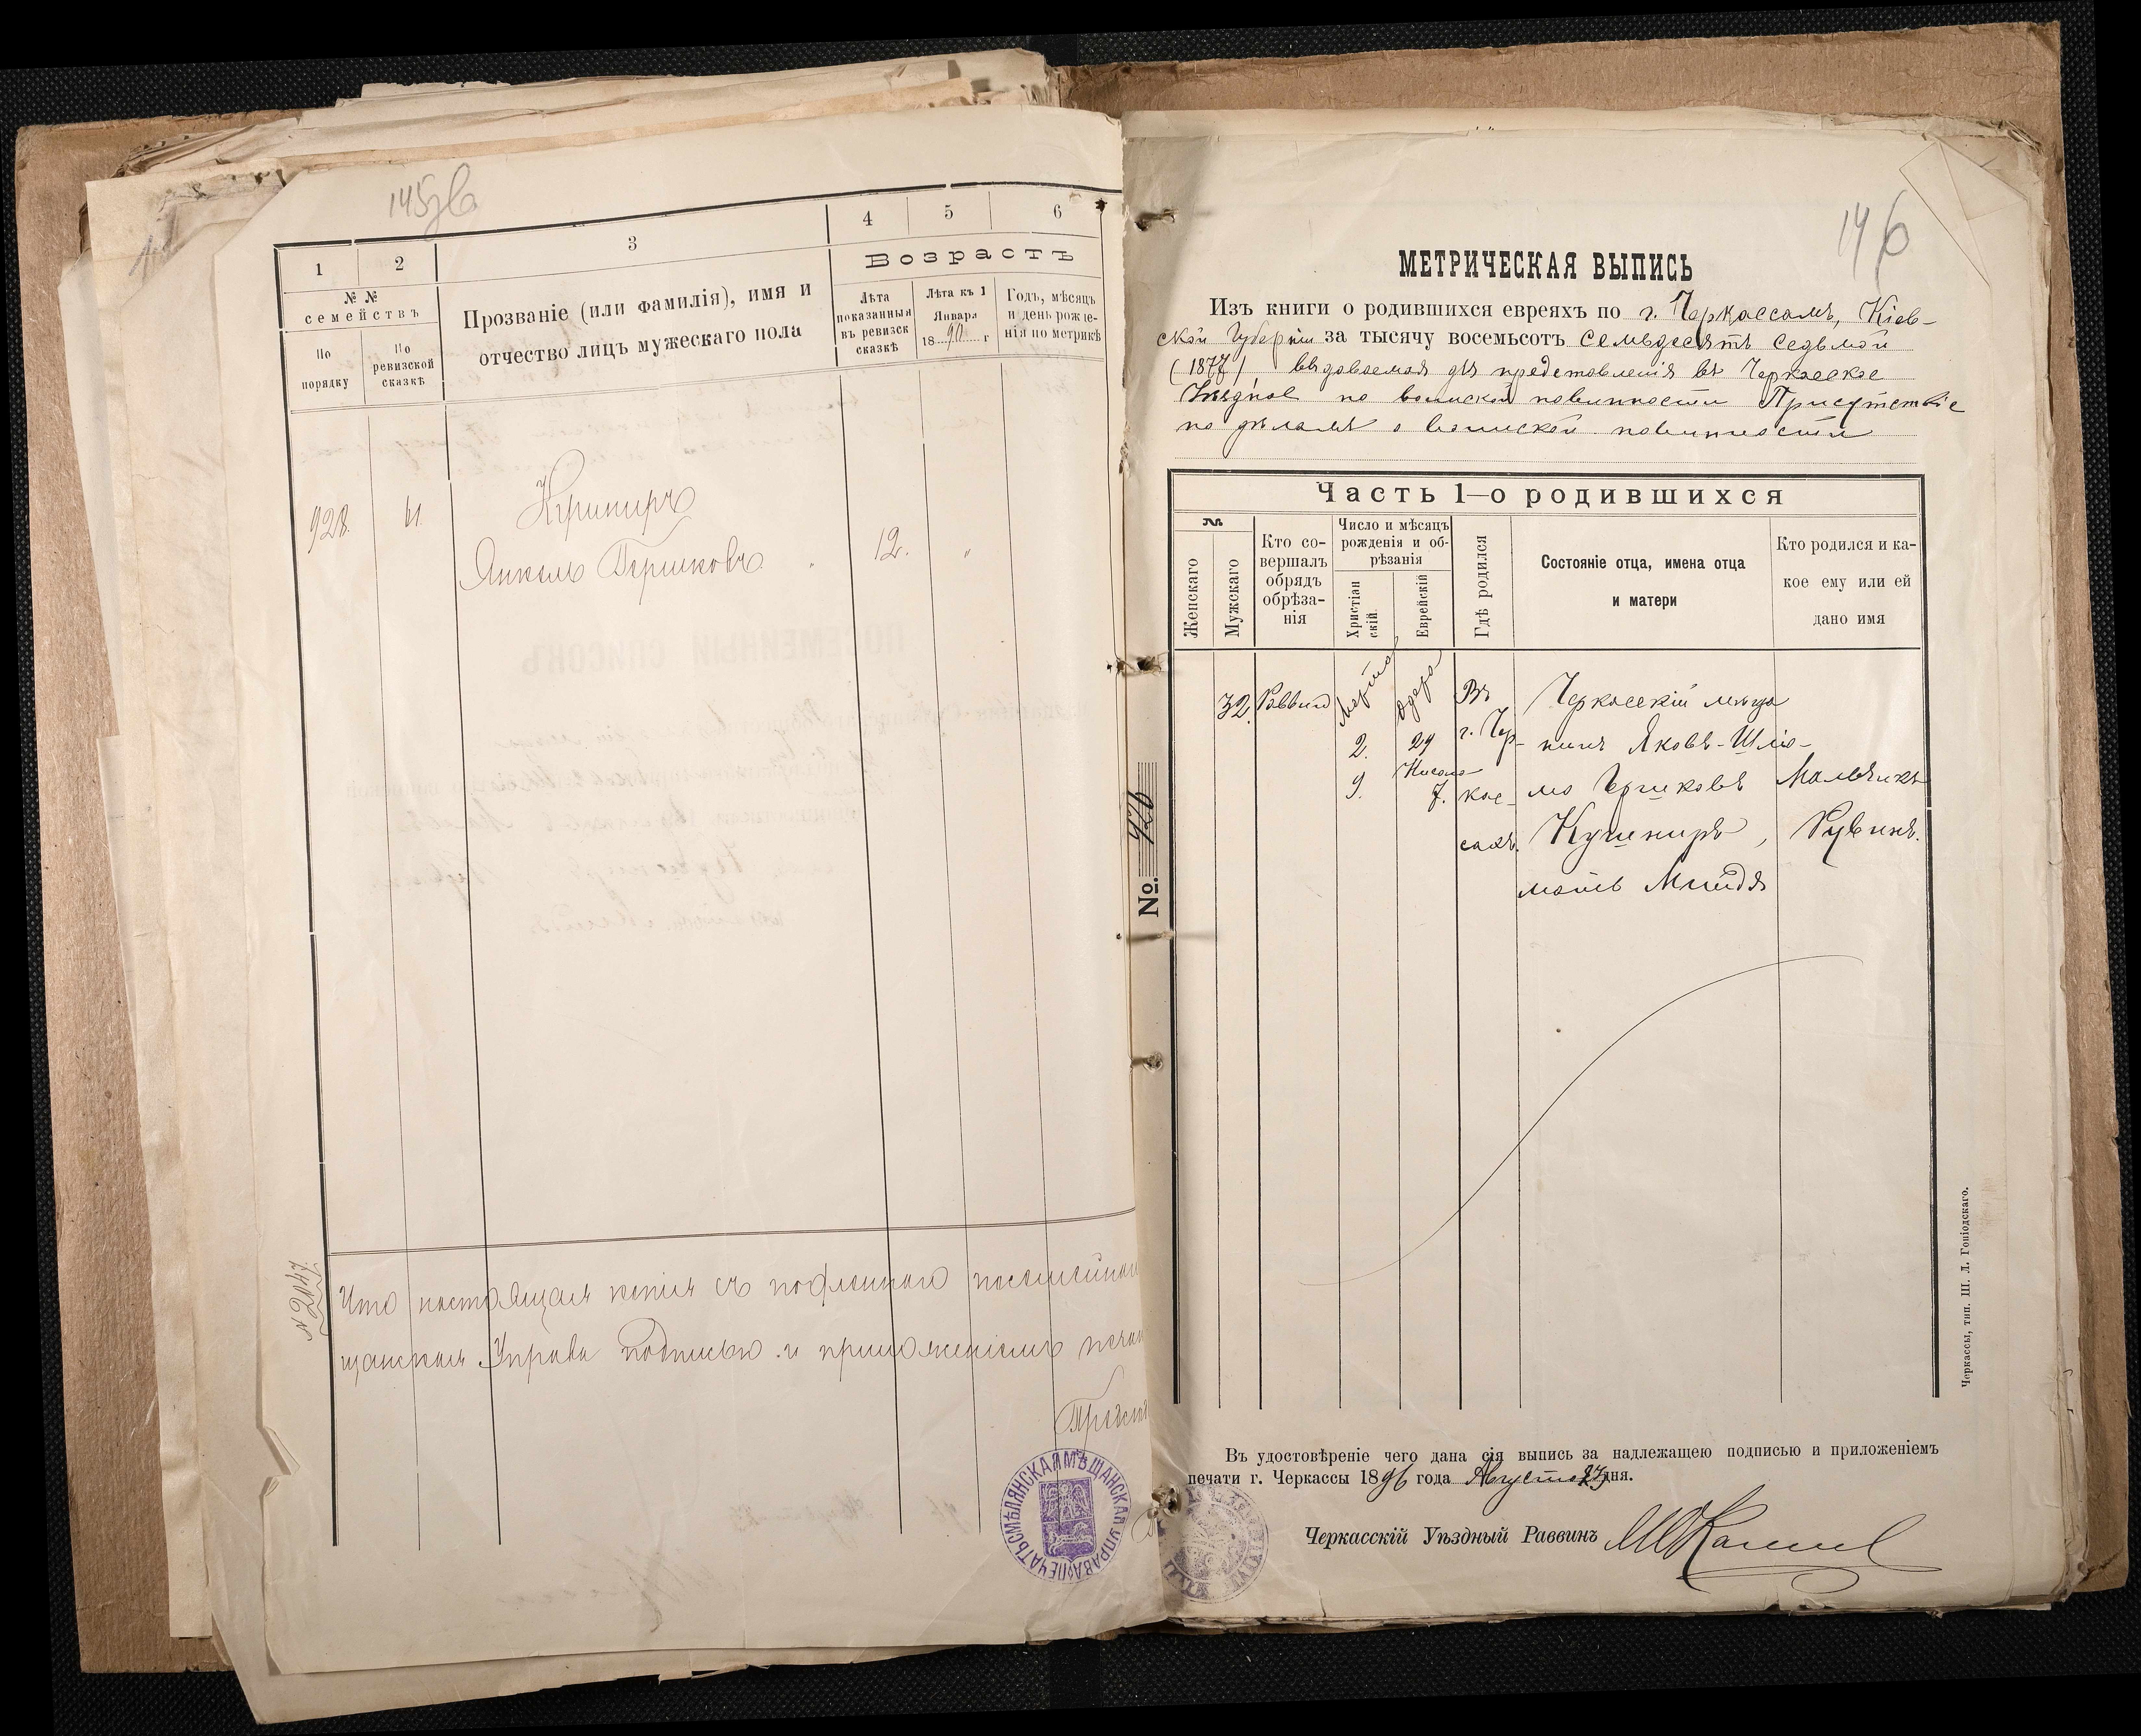 145 об
1
2
3
4
5
6
№ №
семействъ
По порядку
По ревизской сказкѣ
Прозваніе (или фамилія), имя и
отчество лицъ мужескаго пола
Возрастъ
Лѣта показанныя въ ревизск сказкѣ
Лѣта къ 1 Января 1890 г
Годъ, мѣсяцъ и день рожде-
нія по метрикѣ
928.
61.
Кушниръ
Янкель Гершковъ
12.
"
№ 2047.
Что настоящая копія съ подлиннаго посемейнаго
щанская Управа подписью и приложеніемъ печат
ПЕЧАТЬ СМѢЛЯНСКАЯ МѢЩАНСКАЯ УПРАВА
146
МЕТРИЧЕСКАЯ ВЫПИСЬ
Изъ книги о родившихся евреяхъ по г. Черкассамъ, Кіев-
ской Губерніи за тысячу восемьсотъ семьдесятъ седьмой
(1877) выдаваемая для представленія въ Черкасское
Уѣздное по воинской повинности Присутствіе
по дѣламъ о воинской повинности
Часть 1—о родившихся
№
Женскаго
Мужскаго
Кто со-
вершалъ
обрядъ
обрѣза-
нія
Число и мѣсяцъ
рожденія и об-
рѣзанія
Христіан
скій.
Еврейскій
Гдѣ родился
Состояніе отца, имена отца
и матери
Кто родился и ка-
кое ему или ей
дано имя
32.
Раввинъ
Марта
2.
9.
Адара
29
Нисана
7.
Въ
г. Чер-
кас-
сахъ.
Черкасскій мѣща
нинъ Яковъ-Шлио-
мо Гершковъ
Кушниръ,
мать Миндя
Мальчикъ
Рувинъ.
No. 426
Въ удостовѣреніе чего дана сія выпись за надлежащею подписью и приложеніемъ
печати г. Черкассы 1896 года Августа 27 дня.
Черкасскій Уѣздный Раввинъ
Черкассы, тип. Ш. Л. Гоніодскаго.